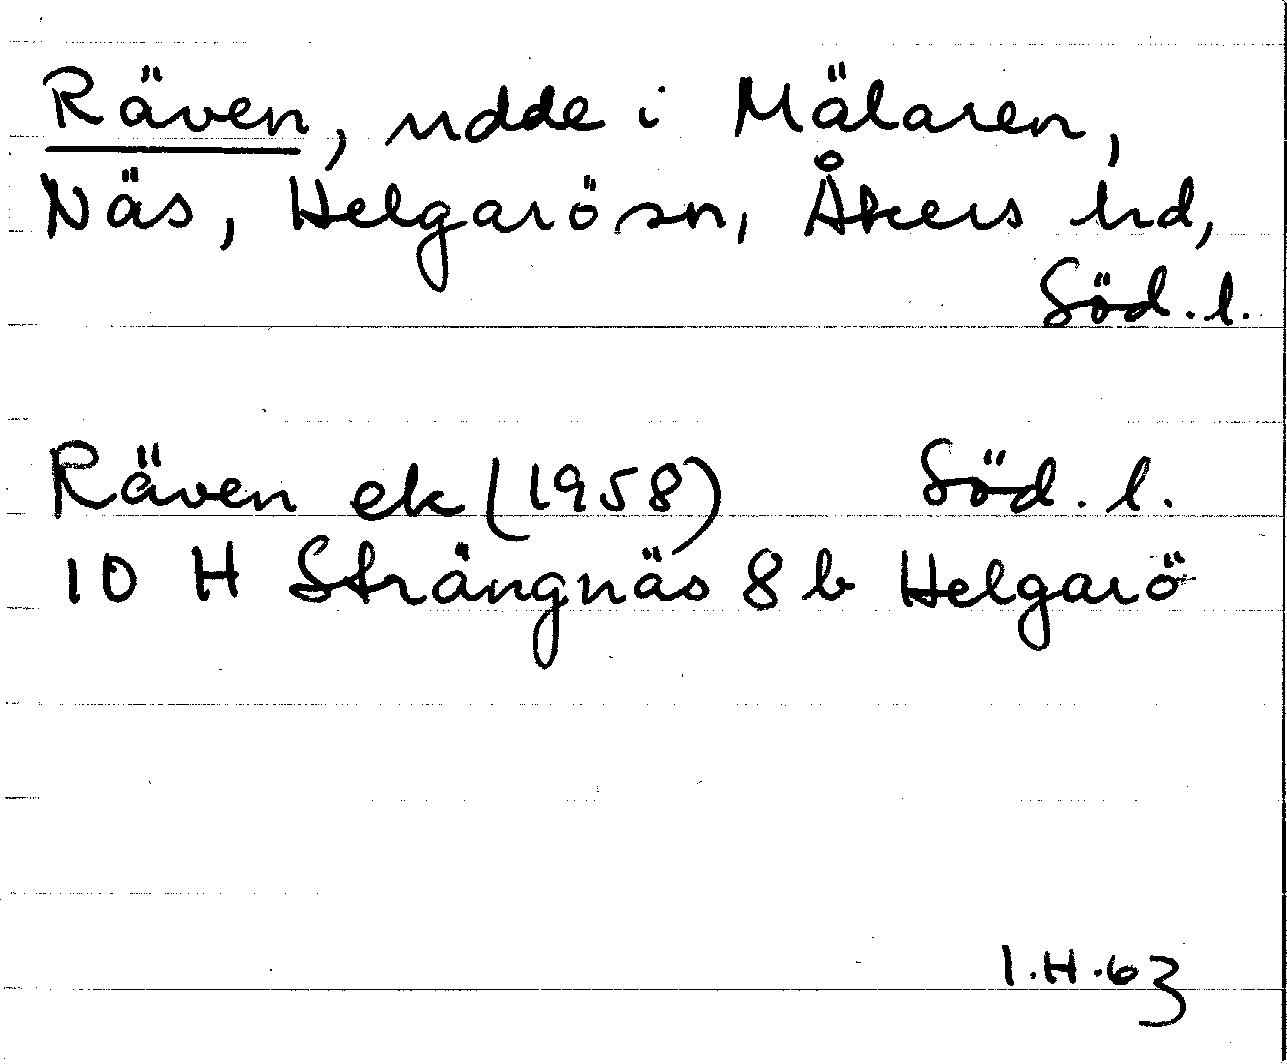 Räven, udde i Mälaren,
Näs, Helgarö sn, Åkers hd,
Söd. l.
Räven ek (1958) Söd. l.
10 H Strängnäs 8 b Helgarö
I.H.63